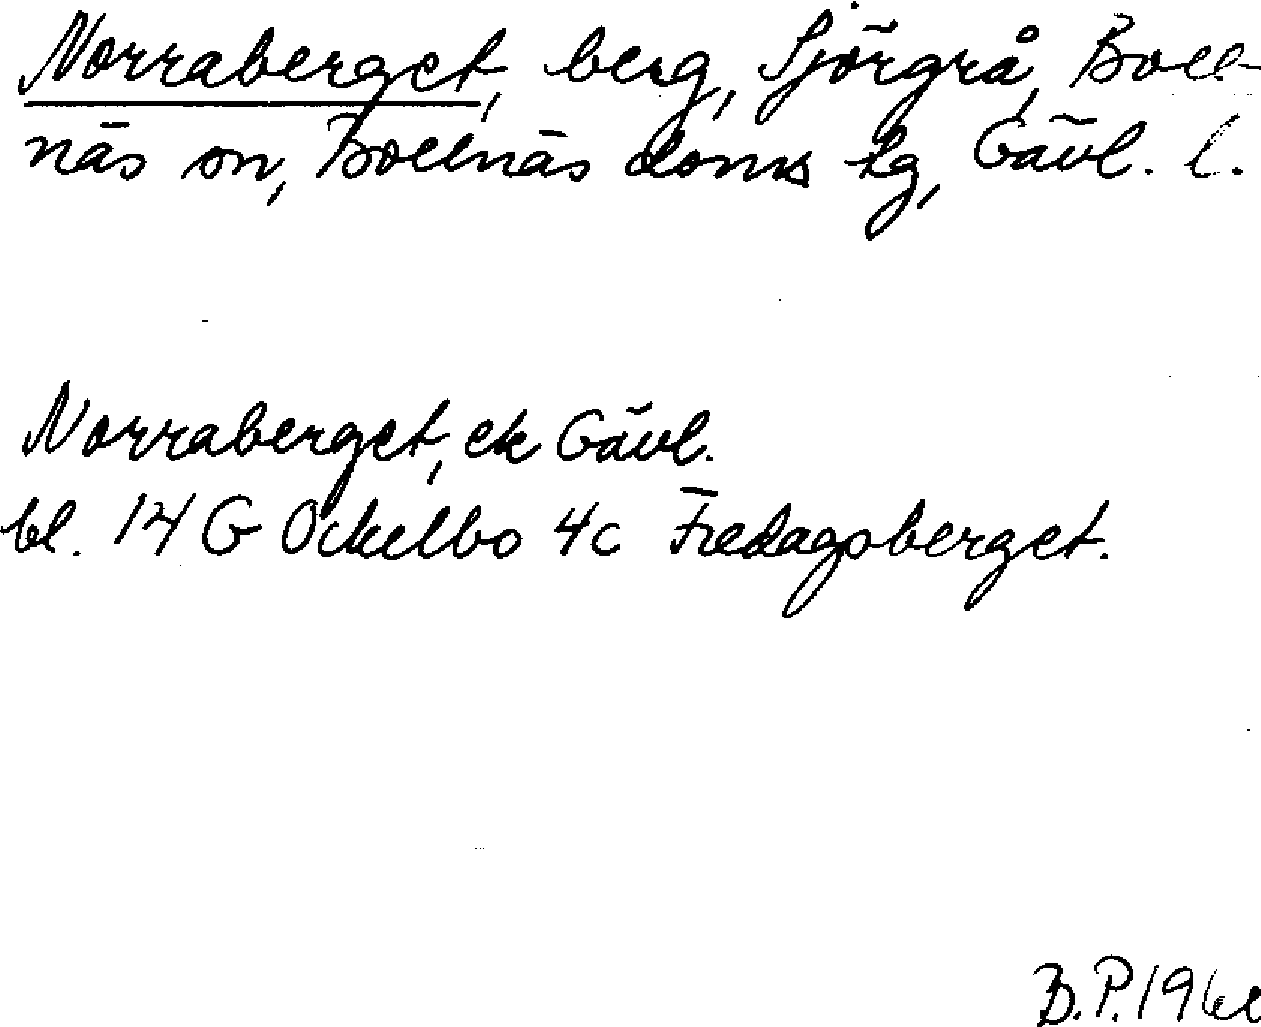 Norraberget, berg, Sjörgrå, Boll-
näs sn, Bollnäs doms lg, Gävl. l.
Norraberget, ek Gävl.
bl. 14 G Ockelbo 4c Fredagsberget.
B.P.